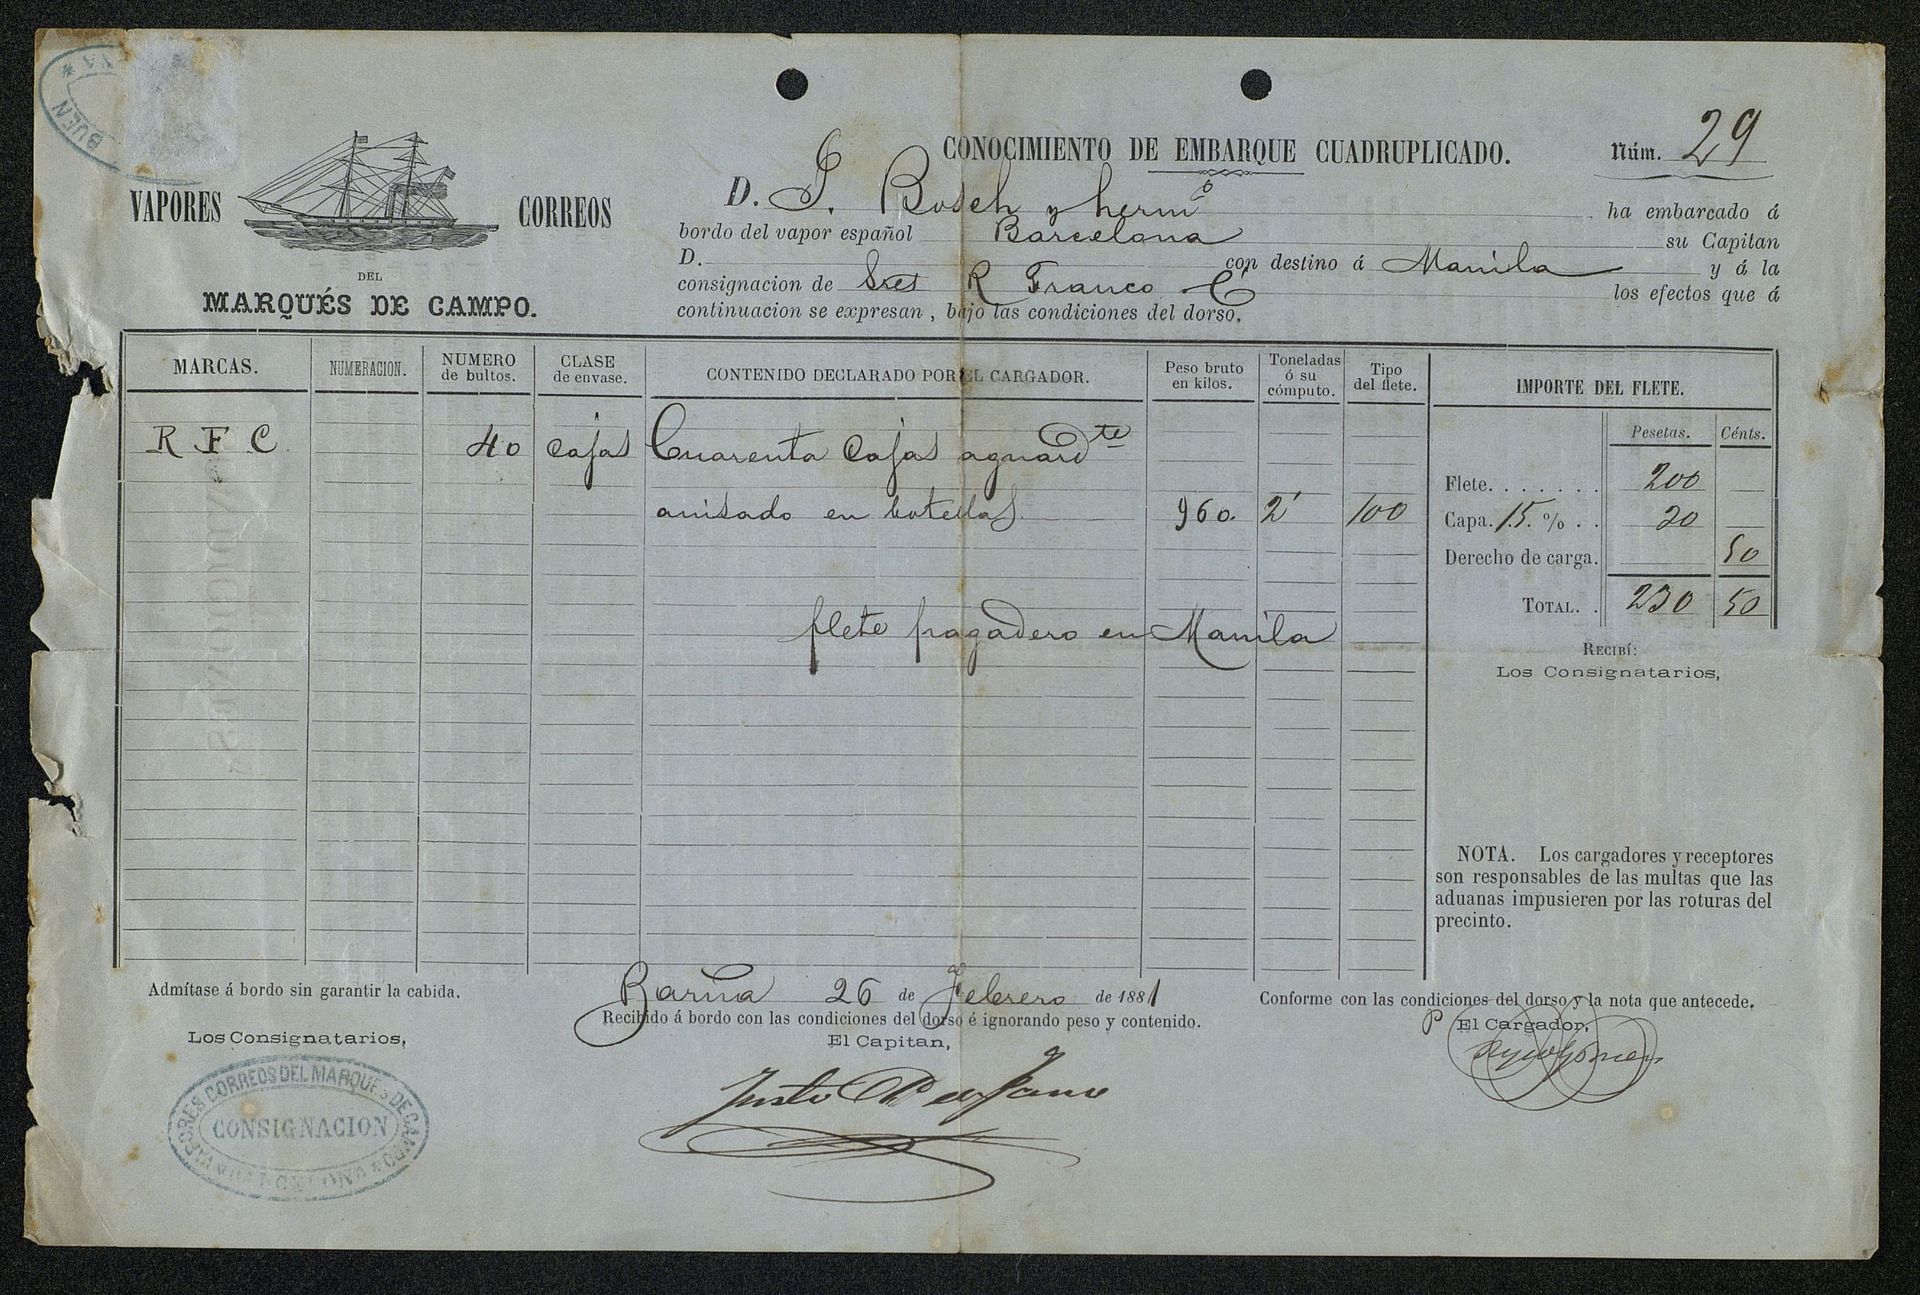 BUEN
VAPORES CORREOS
DEL
MARQUÉS DE CAMPO.
CONOCIMIENTO DE EMBARQUE CUADRUPLICADO.
Núm. 29
D. J. Bosch y hermº ha embarcado á
bordo del vapor español Barcelona su Capitan
D. con destino á Manila y á la
consignacion de Sres R Franco C los efectos que á
continuacion se expresan, bajo las condiciones del dorso.
MARCAS. NUMERACION. NUMERO de bultos. CLASE de envase. CONTENIDO DECLARADO POR EL CARGADOR. Peso bruto en kilos. Toneladas ó su cómputo. Tipo del flete. IMPORTE DEL FLETE.
Pesetas. Cénts.
R F C 40 cajas Cuarenta cajas aguardte
anisado en botellas 960. 2' 100
Flete. . . . . . . 200
Capa. 15. % . . 30
Derecho de carga. 50
TOTAL. . 230 50
flete pagadero en Manila
RECIBÍ:
Los Consignatarios,
NOTA. Los cargadores y receptores
son responsables de las multas que las
aduanas impusieren por las roturas del
precinto.
Admítase á bordo sin garantir la cabida.
Los Consignatarios,
VAPORES CORREOS DEL MARQUES DE CAMPO
CONSIGNACION
BARCELONA
Barna 26 de Febrero de 1881
Recibido á bordo con las condiciones del dorso é ignorando peso y contenido.
El Capitan,
Justo
Conforme con las condiciones del dorso y la nota que antecede.
P El Cargador,